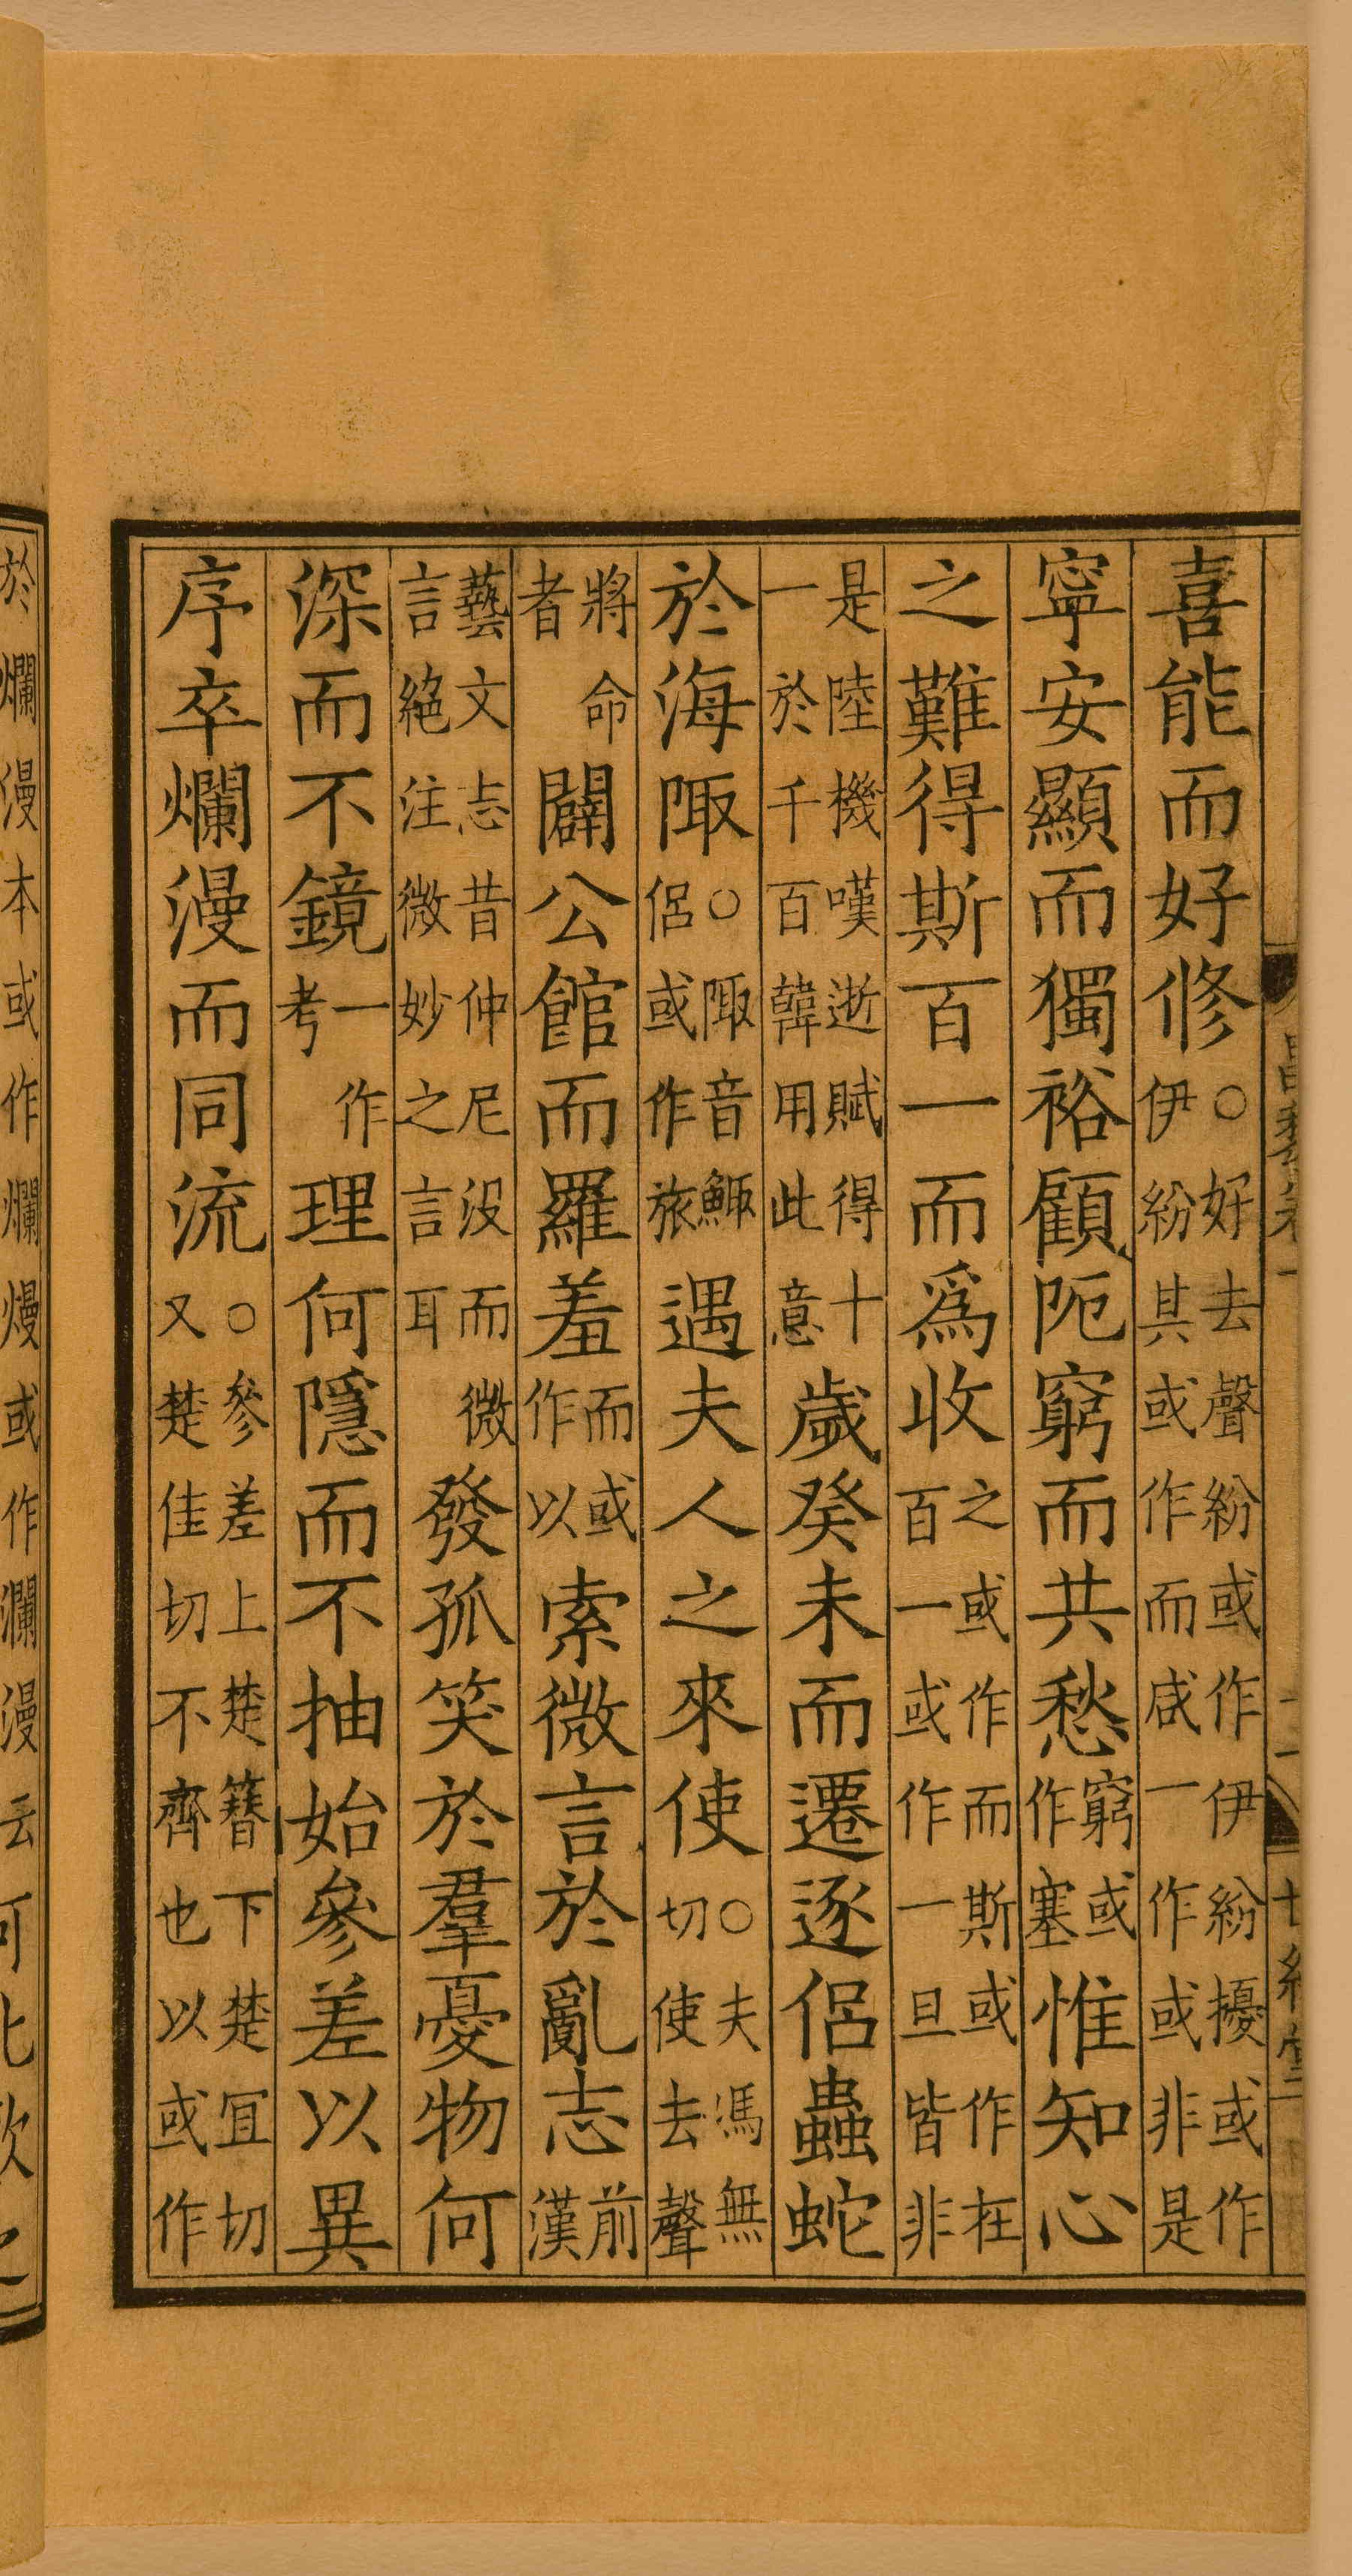 喜能而好修○好去聲紛或作伊紛擾或作伊紛其或作而咸一作或非是
寧安顯而獨裕顧阨窮而共愁窮或作塞惟知心
之難得斯百一而為收之或作而斯或作在百一或作一旦皆非
是陸機嘆逝賦得十一於千百韓用此意歲癸未而遷逐侶蟲蛇
於海陬○陬音鯫侶或作旅遇夫人之來使○夫馮無切使去聲
將命者闢公館而羅羞而或作以索微言於亂志前漢
藝文志昔仲尼没而微言絕注微妙之言耳發孤笑於羣憂物何
深而不鏡一作考理何隱而不抽始參差以異
序卒爛漫而同流○參差上楚簪下楚宜切又楚佳切不齊也以或作
於爛漫本或作爛熳或作瀾漫云